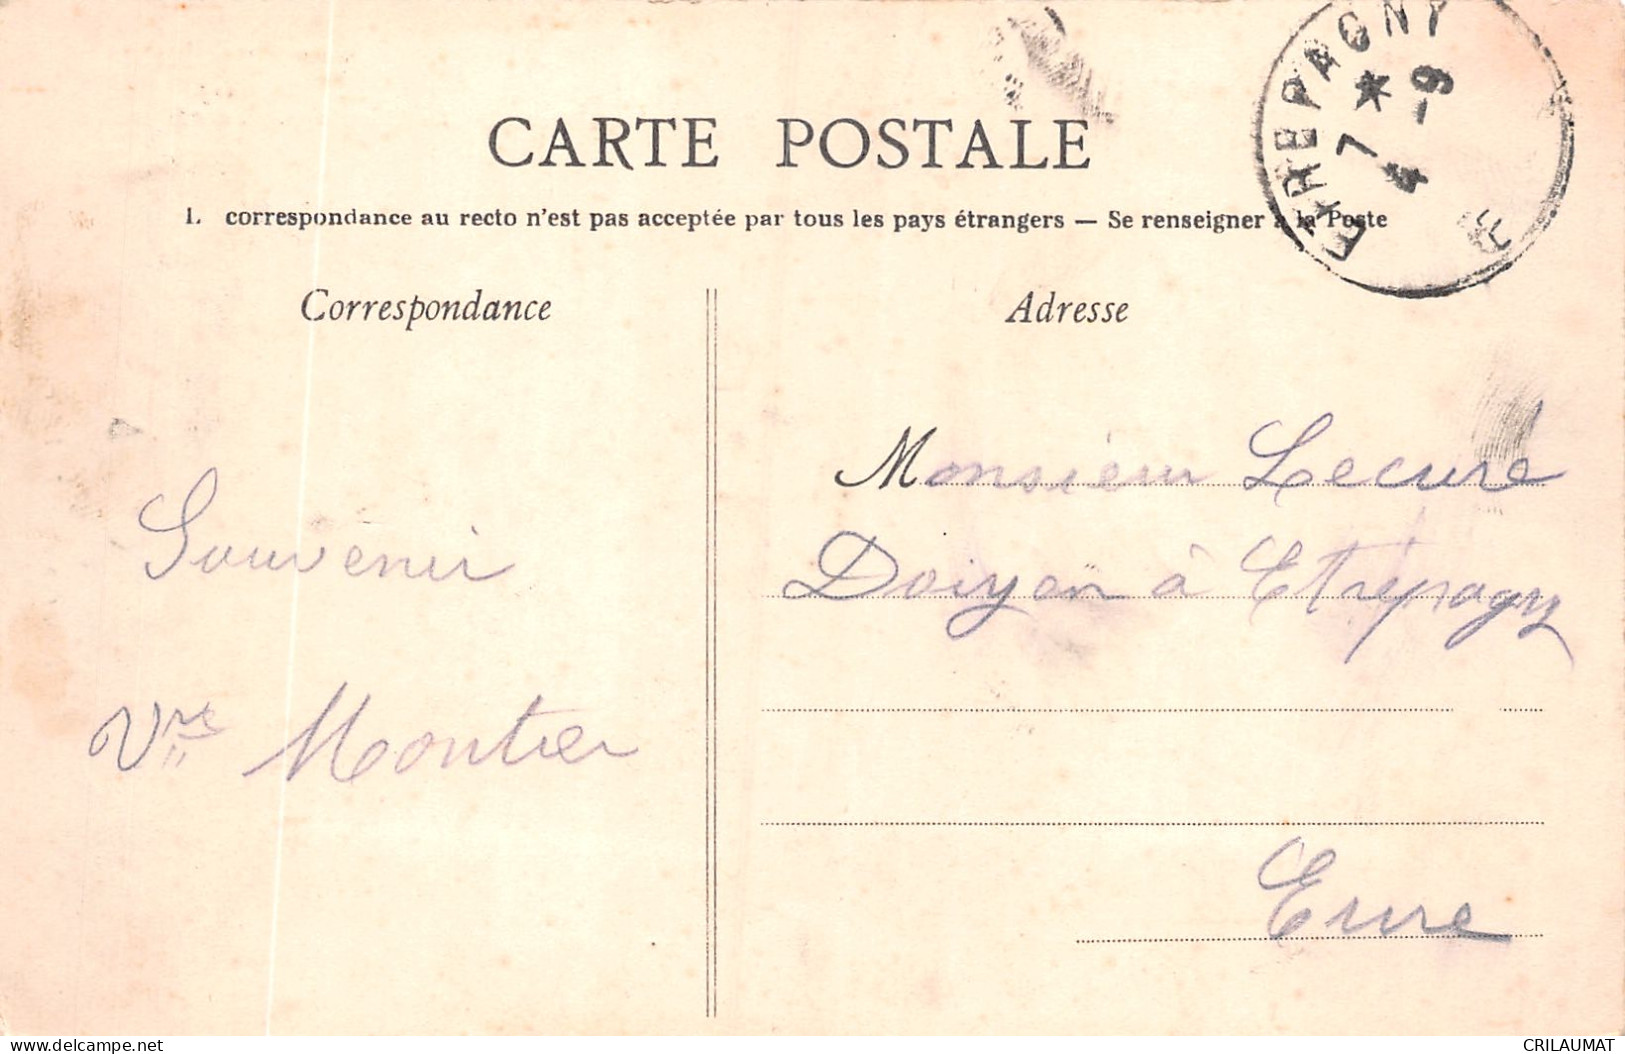 CARTE POSTALE
1. correspondance au recto n'est pas acceptée par tous les pays étrangers — Se renseigner à la Poste
ETREPAGNY
7 * 
4 -9
E
Correspondance
Adresse
Souvenir
Vve Montier
Monsieur Lecure
Doiyen à Etrepagny
Eure
delcampe.net
CRILAUMAT